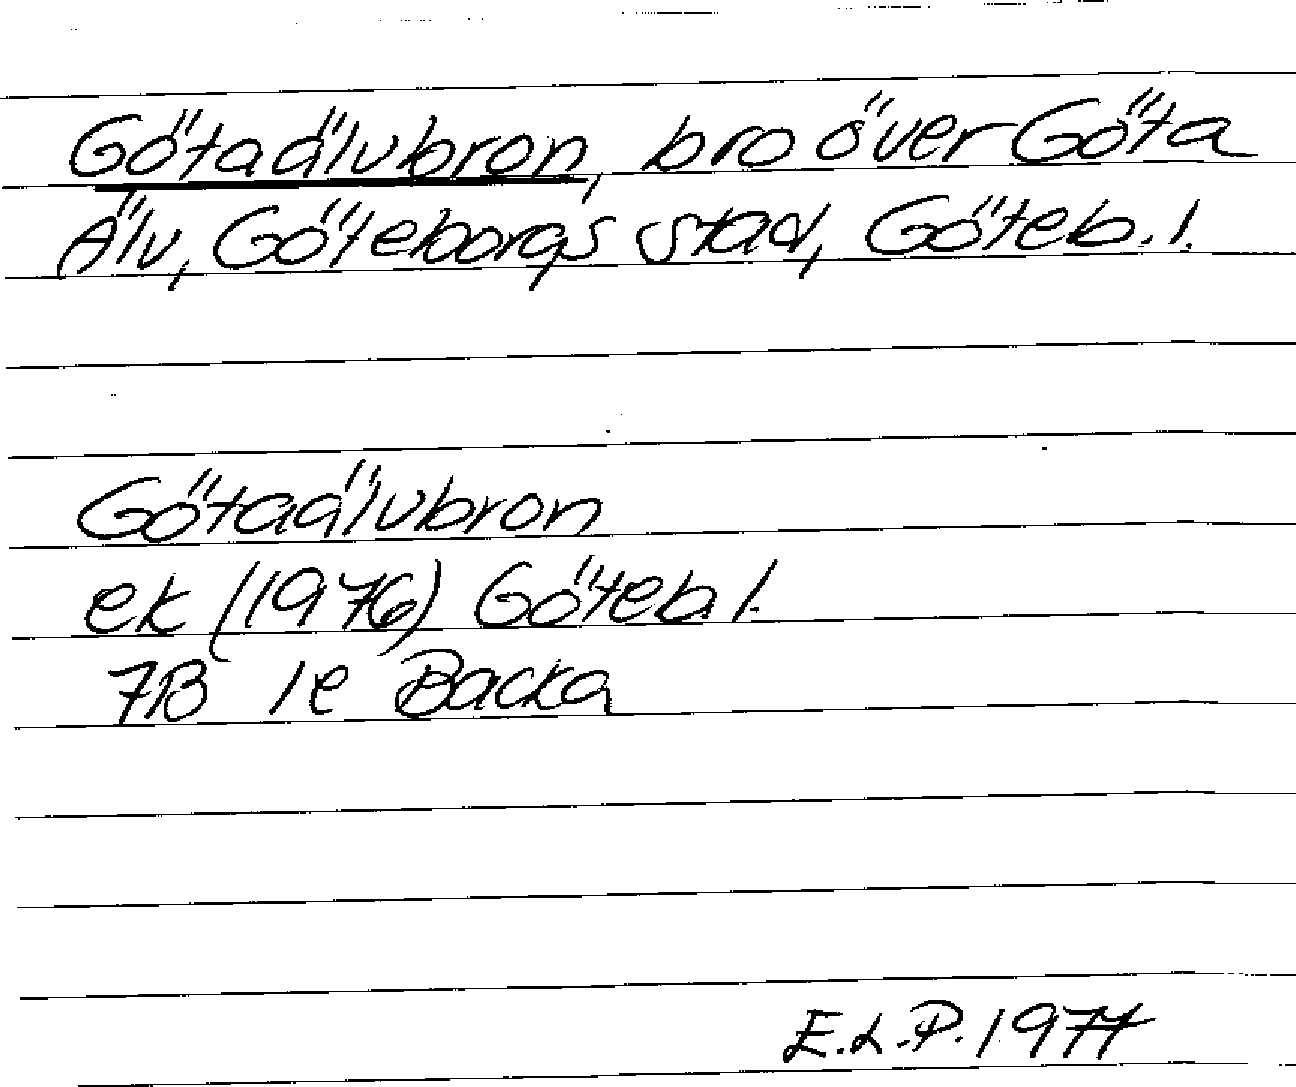 Götaälvbron, bro över Göta
Älv, Göteborgs stad, Göteb. l.
Götaälvbron
ek (1976) Göteb. l.
7B 1e Backa
E.L.P. 1977